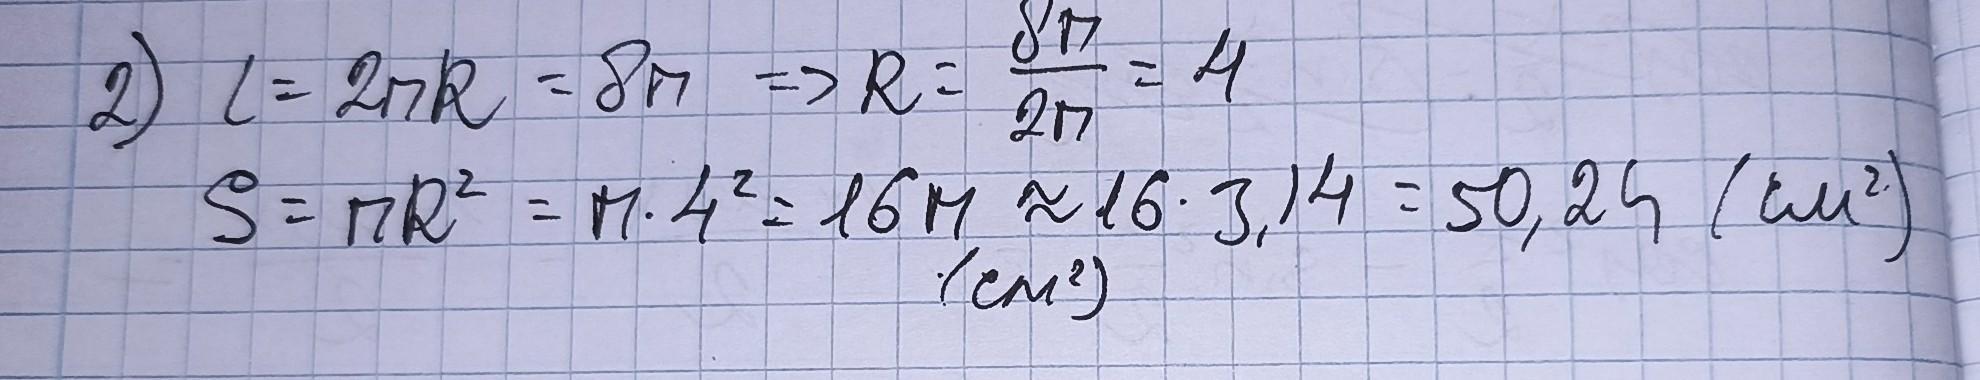 2) l = 2πR = 8π => R = 8π/2π = 4
S = πR² = π · 4² = 16π ≈ 16 · 3,14 = 50,24 (см²)
(см²)